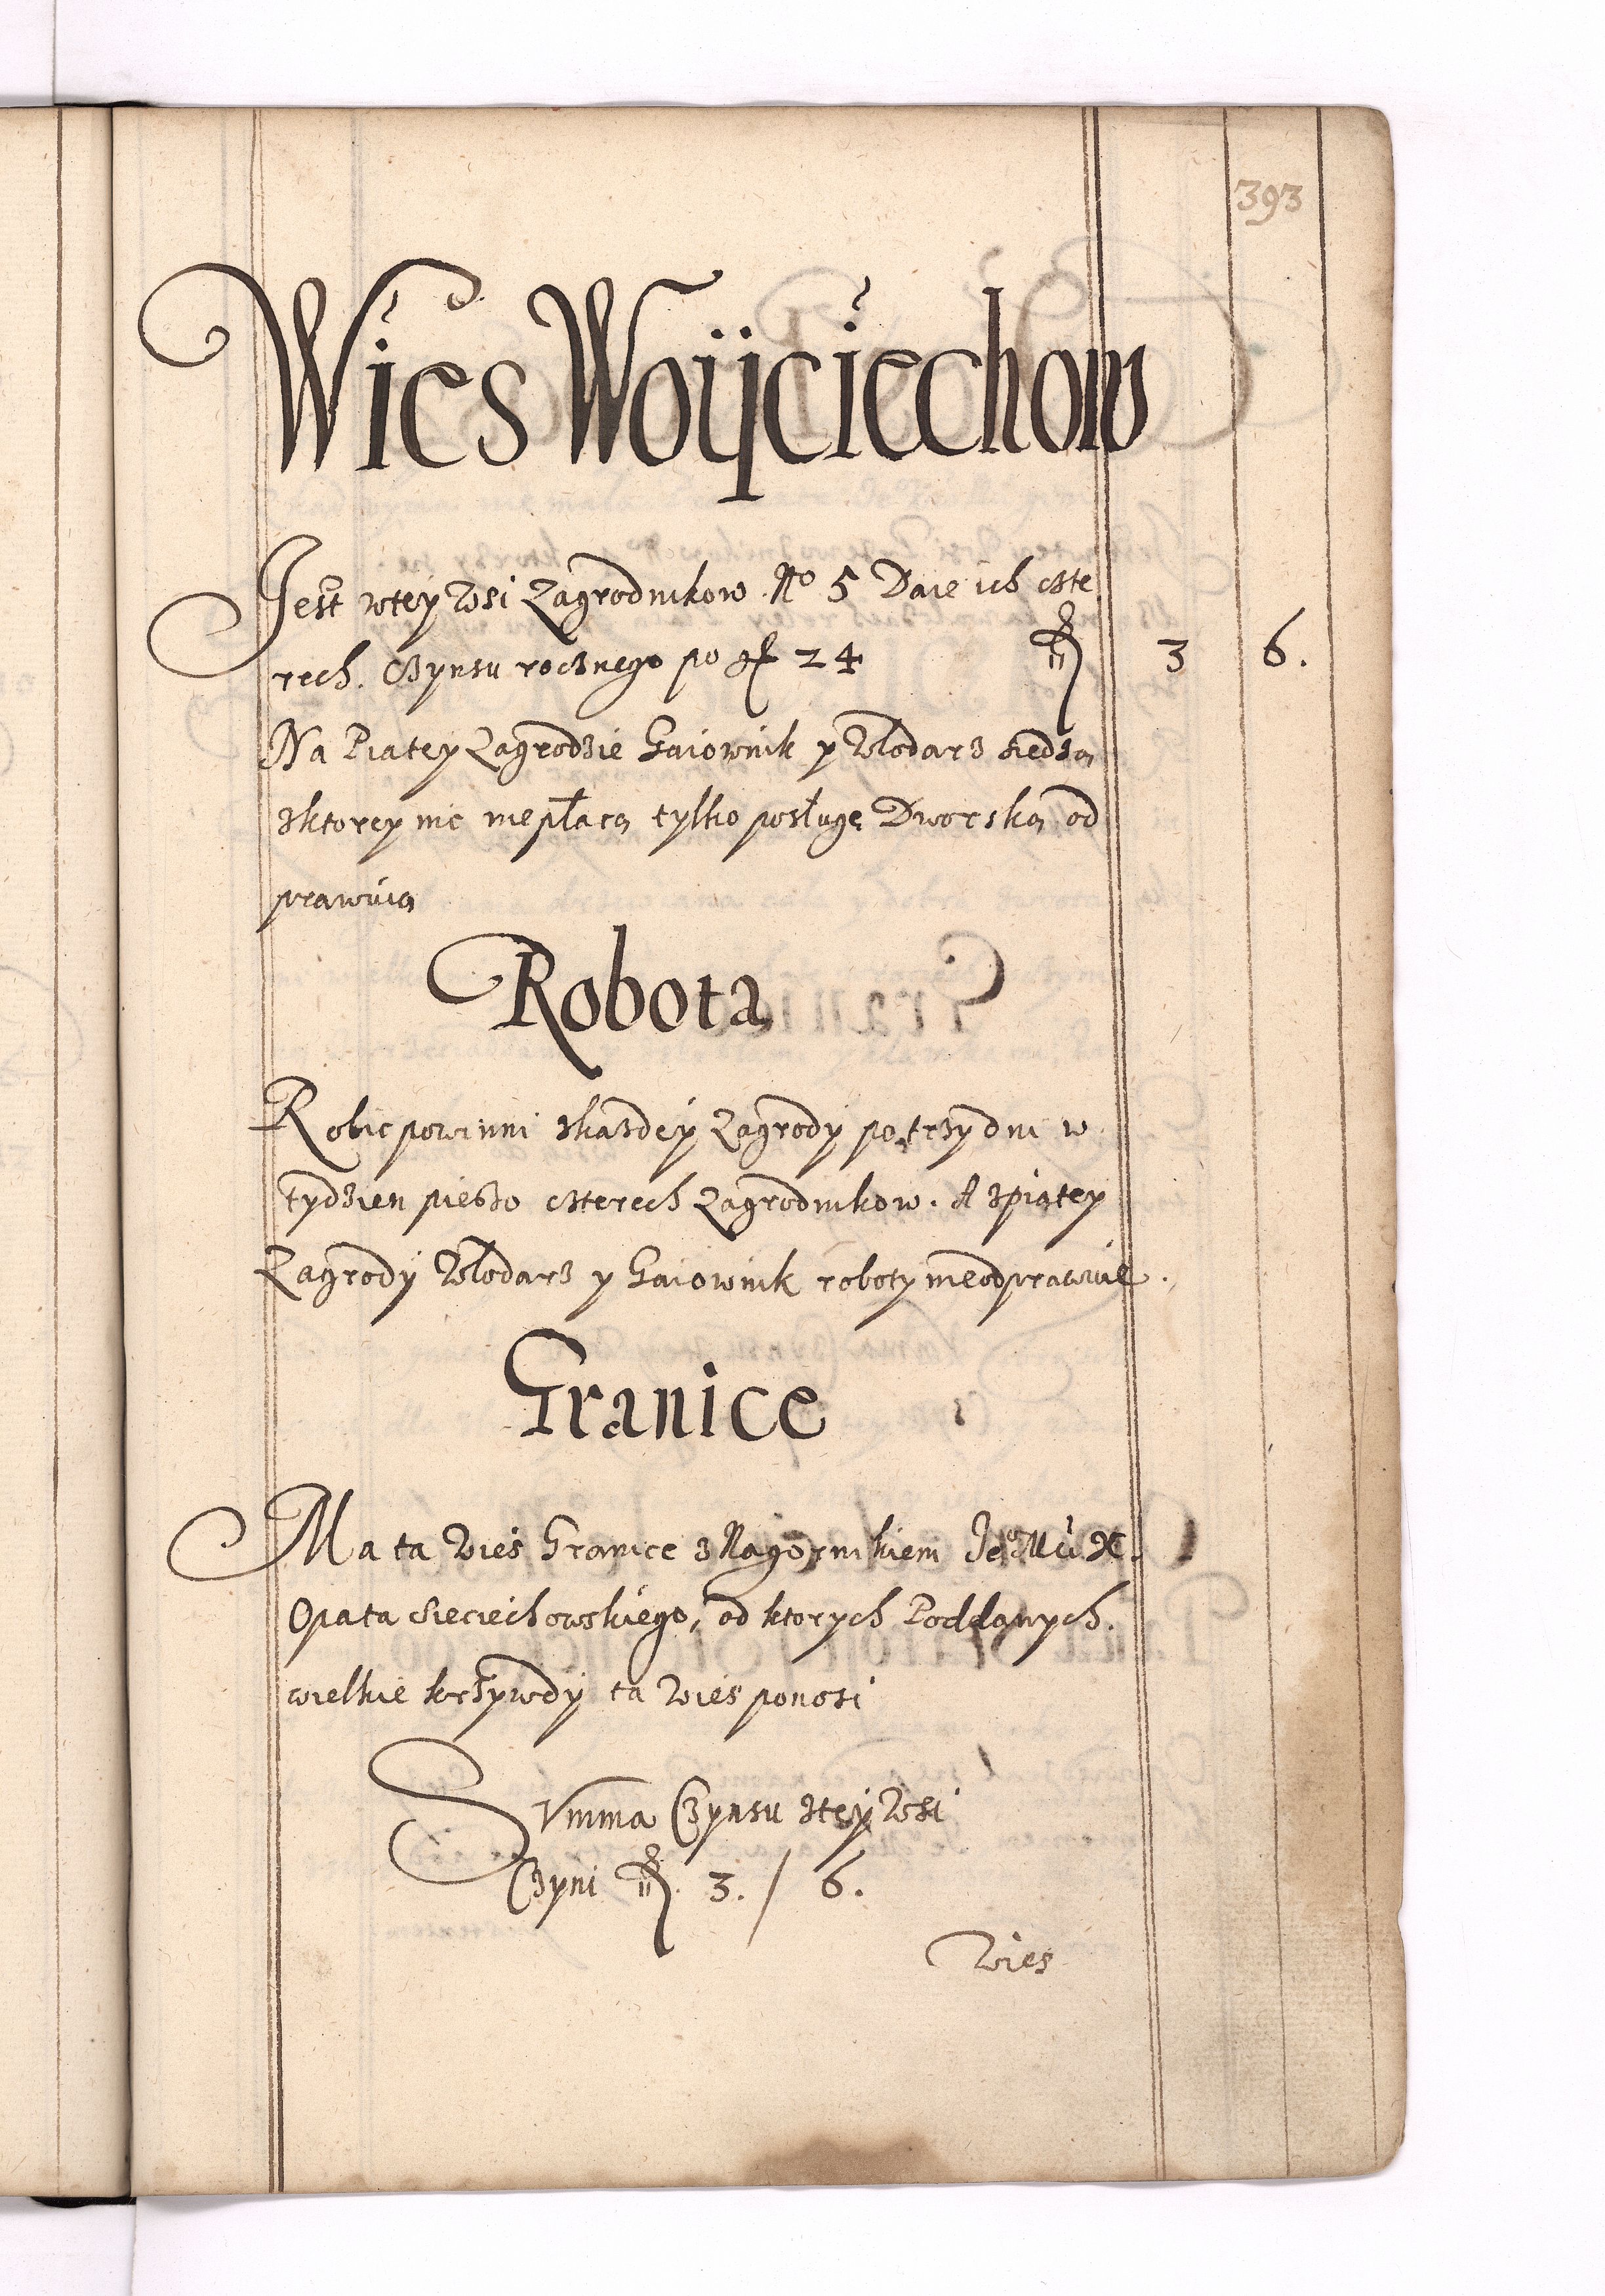 393
Wies Woÿciechow
Jest wtey Wsi Zagrodnikow No 5 Daie ich cste
rech. Czynsu rocznego po gł 24 fl 3 6.
Na Piatey Zagrodzie Gaiownik y Włodarz siedzą
zktorey nic niepłacą tylko posługę Dworską od
prawuią
Robota
Robic powinni zkazdeÿ Zagrody po trzy dni w
tydzien pieszo czterech Zagrodnikow. A zpiątey
Zagrodÿ Włodarz y Gaiownik roboty nieodprawuie.
Granice
Ma ta Wieś Granice z Nagornikiem Je° Mći X.
Opata Sieciechowskiego, od ktorych Poddanych.
wielkie krzywdÿ ta Wies ponosi
Summa Czynsu zteÿ Wsi
Czyni fl. 3. / 6.
Wies